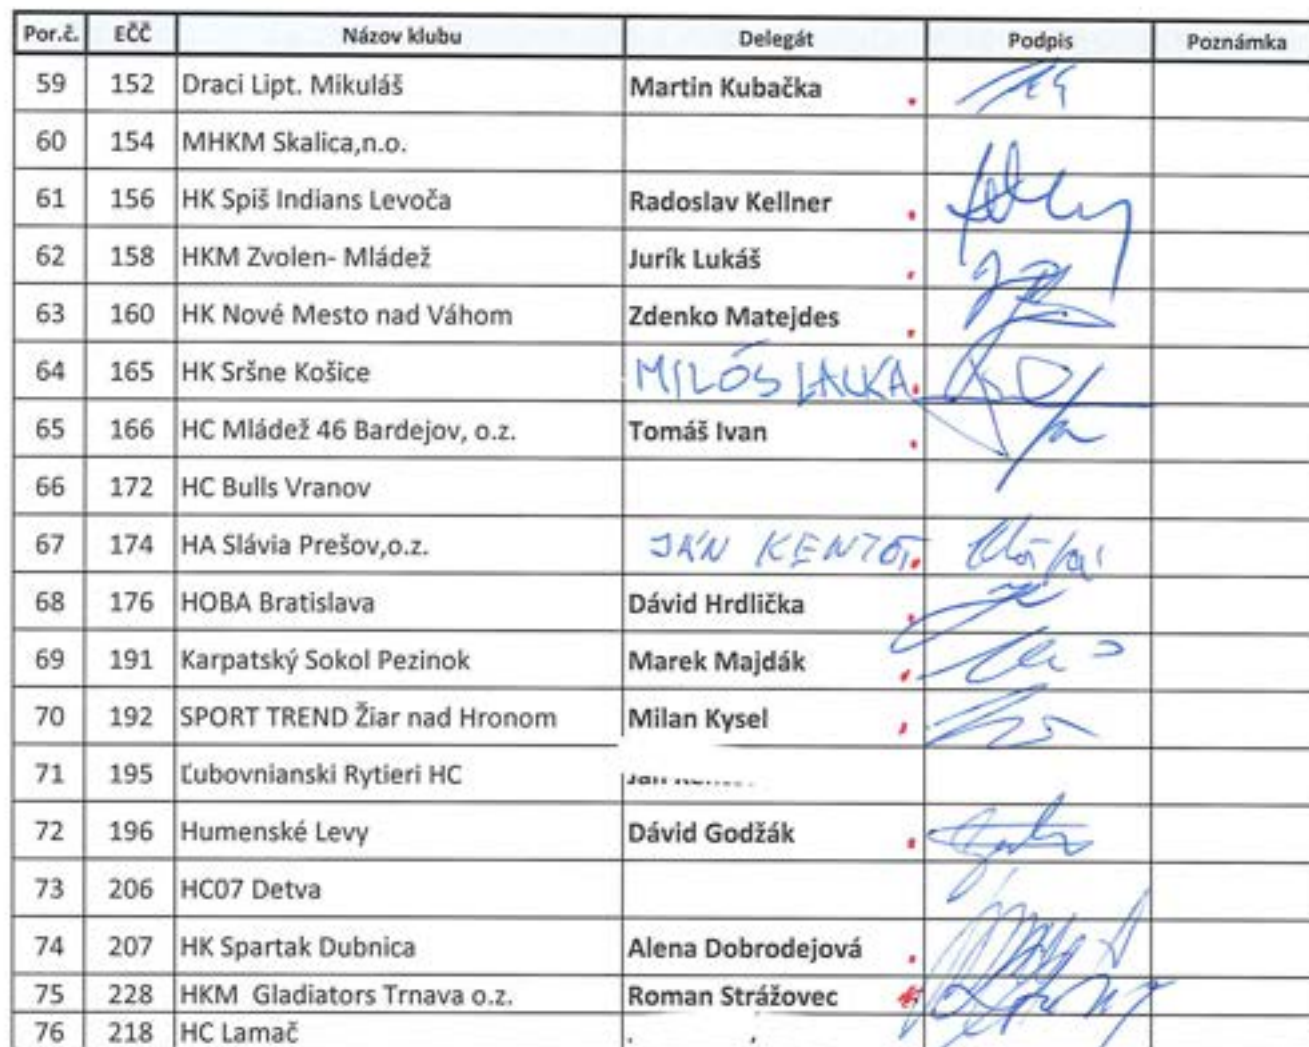 Por.č. EČČ Názov klubu Delegát Podpis Poznámka
59 152 Draci Lipt. Mikuláš Martin Kubačka
60 154 MHKM Skalica,n.o.
61 156 HK Spiš Indians Levoča Radoslav Kellner
62 158 HKM Zvolen- Mládež Jurík Lukáš
63 160 HK Nové Mesto nad Váhom Zdenko Matejdes
64 165 HK Sršne Košice MILOŠ LALKA
65 166 HC Mládež 46 Bardejov, o.z. Tomáš Ivan
66 172 HC Bulls Vranov
67 174 HA Slávia Prešov,o.z. JÁN
68 176 HOBA Bratislava Dávid Hrdlička
69 191 Karpatský Sokol Pezinok Marek Majdák
70 192 SPORT TREND Žiar nad Hronom Milan Kysel
71 195 Ľubovnianski Rytieri HC
72 196 Humenské Levy Dávid Godžák
73 206 HC07 Detva
74 207 HK Spartak Dubnica Alena Dobrodejová
75 228 HKM Gladiators Trnava o.z. Roman Strážovec
76 218 HC Lamač